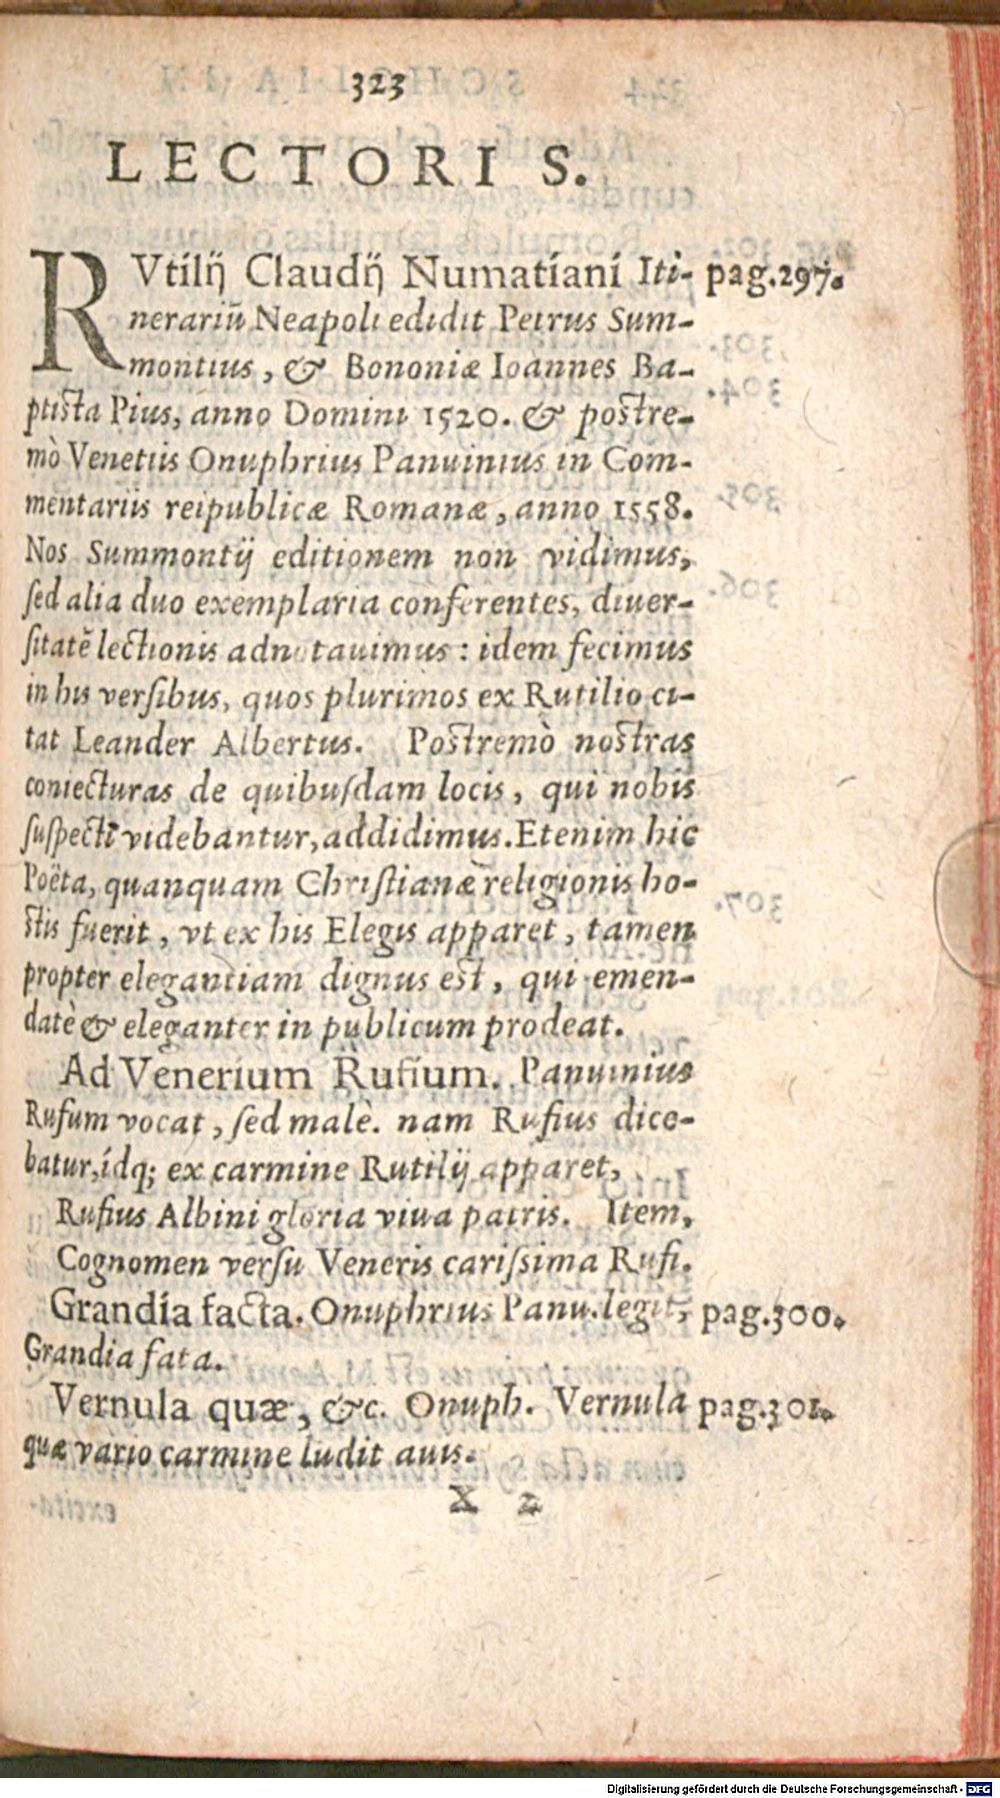 323
LECTORIS S.
RVtilij Claudij Numatiani Iti- pag.297.
nerariū Neapoli edidit Petrus Sum-
montius, & Bononiæ Ioannes Ba-
ptista Pius, anno Domini 1520. & postre-
mò Venetiis Onuphrius Panuinius in Com-
mentariis reipublicæ Romanæ, anno 1558.
Nos Summontij editionem non vidimus,
sed alia duo exemplaria conferentes, diuer-
sitatē lectionis adnotauimus: idem fecimus
in his versibus, quos plurimos ex Rutilio ci-
tat Leander Albertus. Postremò nostras
coniecturas de quibusdam locis, qui nobis
suspecti videbantur, addidimus. Etenim hic
Poëta, quanquam Christianæ religionis ho-
stis fuerit, vt ex his Elegis apparet, tamen
propter elegantiam dignus est, qui emen-
datè & eleganter in publicum prodeat.
Ad Venerium Rufium. Panuinius
Rufum vocat, sed malè. nam Rufius dice-
batur, idq; ex carmine Rutilij apparet,
Rufius Albini gloria viua patris. Item,
Cognomen versu Veneris carissima Rufi.
Grandia facta. Onuphrius Panu. legit, pag.300.
Grandia fata.
Vernula quæ, &c. Onuph. Vernula pag.301.
quæ vario carmine ludit auis.
X 2
Digitalisierung gefördert durch die Deutsche Forschungsgemeinschaft - DFG